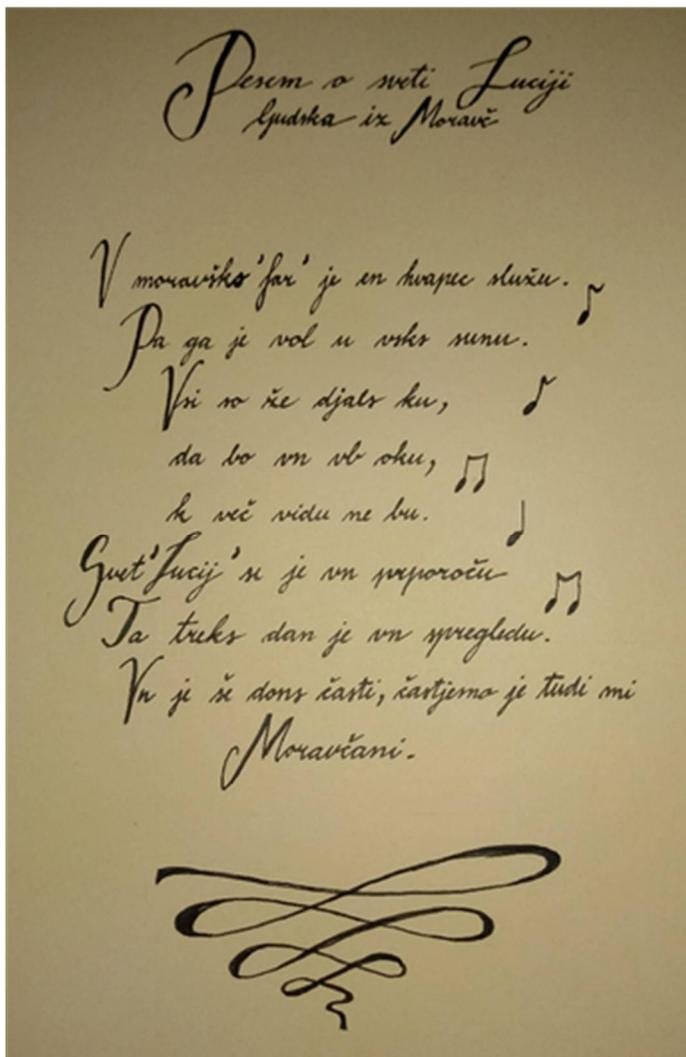 Pesem o sveti Luciji
ljudska iz Moravč
V moravško 'far' je en hvapec služu.
Pa ga je vol u vsks sunu.
Vsi so že djals ku,
da bo vn vb oku,
k več vidu ne bu.
Svet' Lucij' se je vn prporoču
Ta treks dan je vn spregledu.
Vn je še dons časti, častjemo je tudi mi
Moravčani.